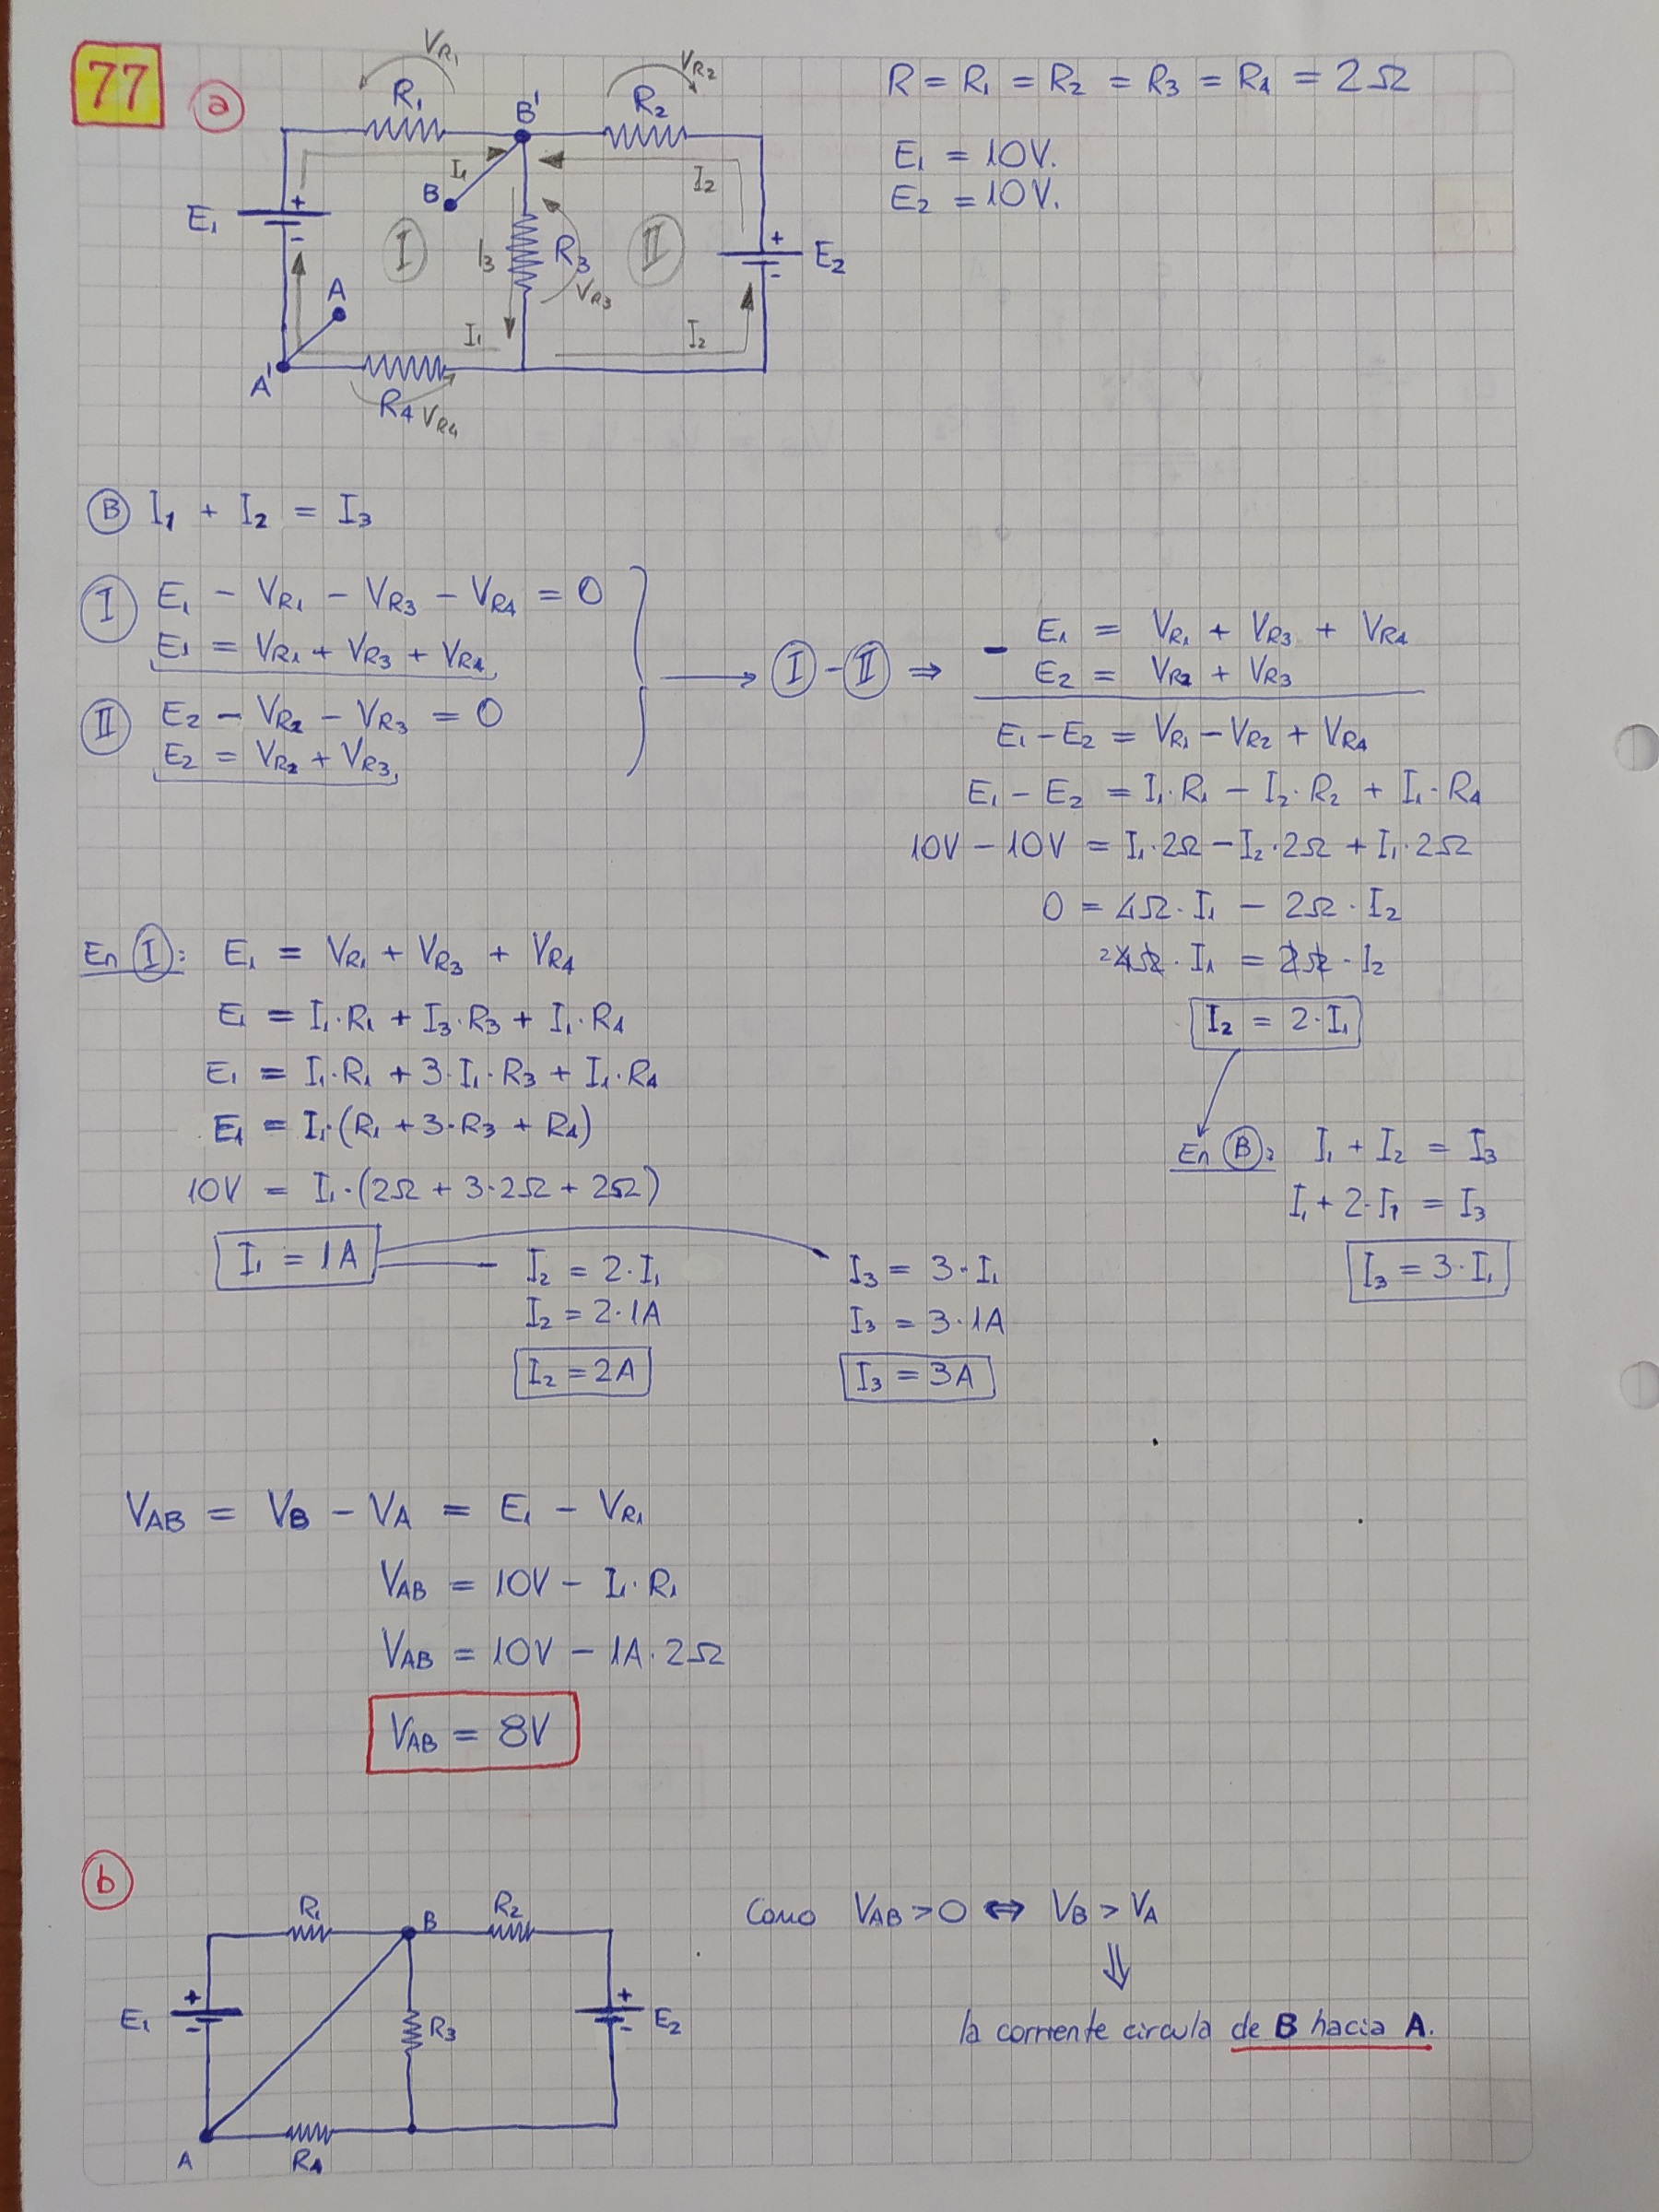 77 a
R = R1 = R2 = R3 = R4 = 2Ω
E1 = 10V.
E2 = 10V.
VR1
VR2
R1
B'
R2
I1
I2
B
E1
+
-
I
I3
R3
II
+
-
E2
VR3
A
I1
I2
A'
R4
VR4
B I1 + I2 = I3
I E1 - VR1 - VR3 - VR4 = 0
E1 = VR1 + VR3 + VR4
II E2 - VR2 - VR3 = 0
E2 = VR2 + VR3
I - II ⇒
- E1 = VR1 + VR3 + VR4
E2 = VR2 + VR3
E1 - E2 = VR1 - VR2 + VR4
E1 - E2 = I1·R1 - I2·R2 + I1·R4
10V - 10V = I1·2Ω - I2·2Ω + I1·2Ω
0 = 4Ω·I1 - 2Ω·I2
2 4Ω·I1 = 2Ω·I2
I2 = 2·I1
En B: I1 + I2 = I3
I1 + 2·I1 = I3
I3 = 3·I1
En I: E1 = VR1 + VR3 + VR4
E1 = I1·R1 + I3·R3 + I1·R4
E1 = I1·R1 + 3·I1·R3 + I1·R4
E1 = I1·(R1 + 3·R3 + R4)
10V = I1·(2Ω + 3·2Ω + 2Ω)
I1 = 1A
I2 = 2·I1
I2 = 2·1A
I2 = 2A
I3 = 3·I1
I3 = 3·1A
I3 = 3A
VAB = VB - VA = E1 - VR1
VAB = 10V - I1·R1
VAB = 10V - 1A·2Ω
VAB = 8V
b
R1
B
R2
E1
+
-
R3
+
-
E2
A
R4
Como VAB > 0 ⇔ VB > VA
⇓
la corriente circula de B hacia A.